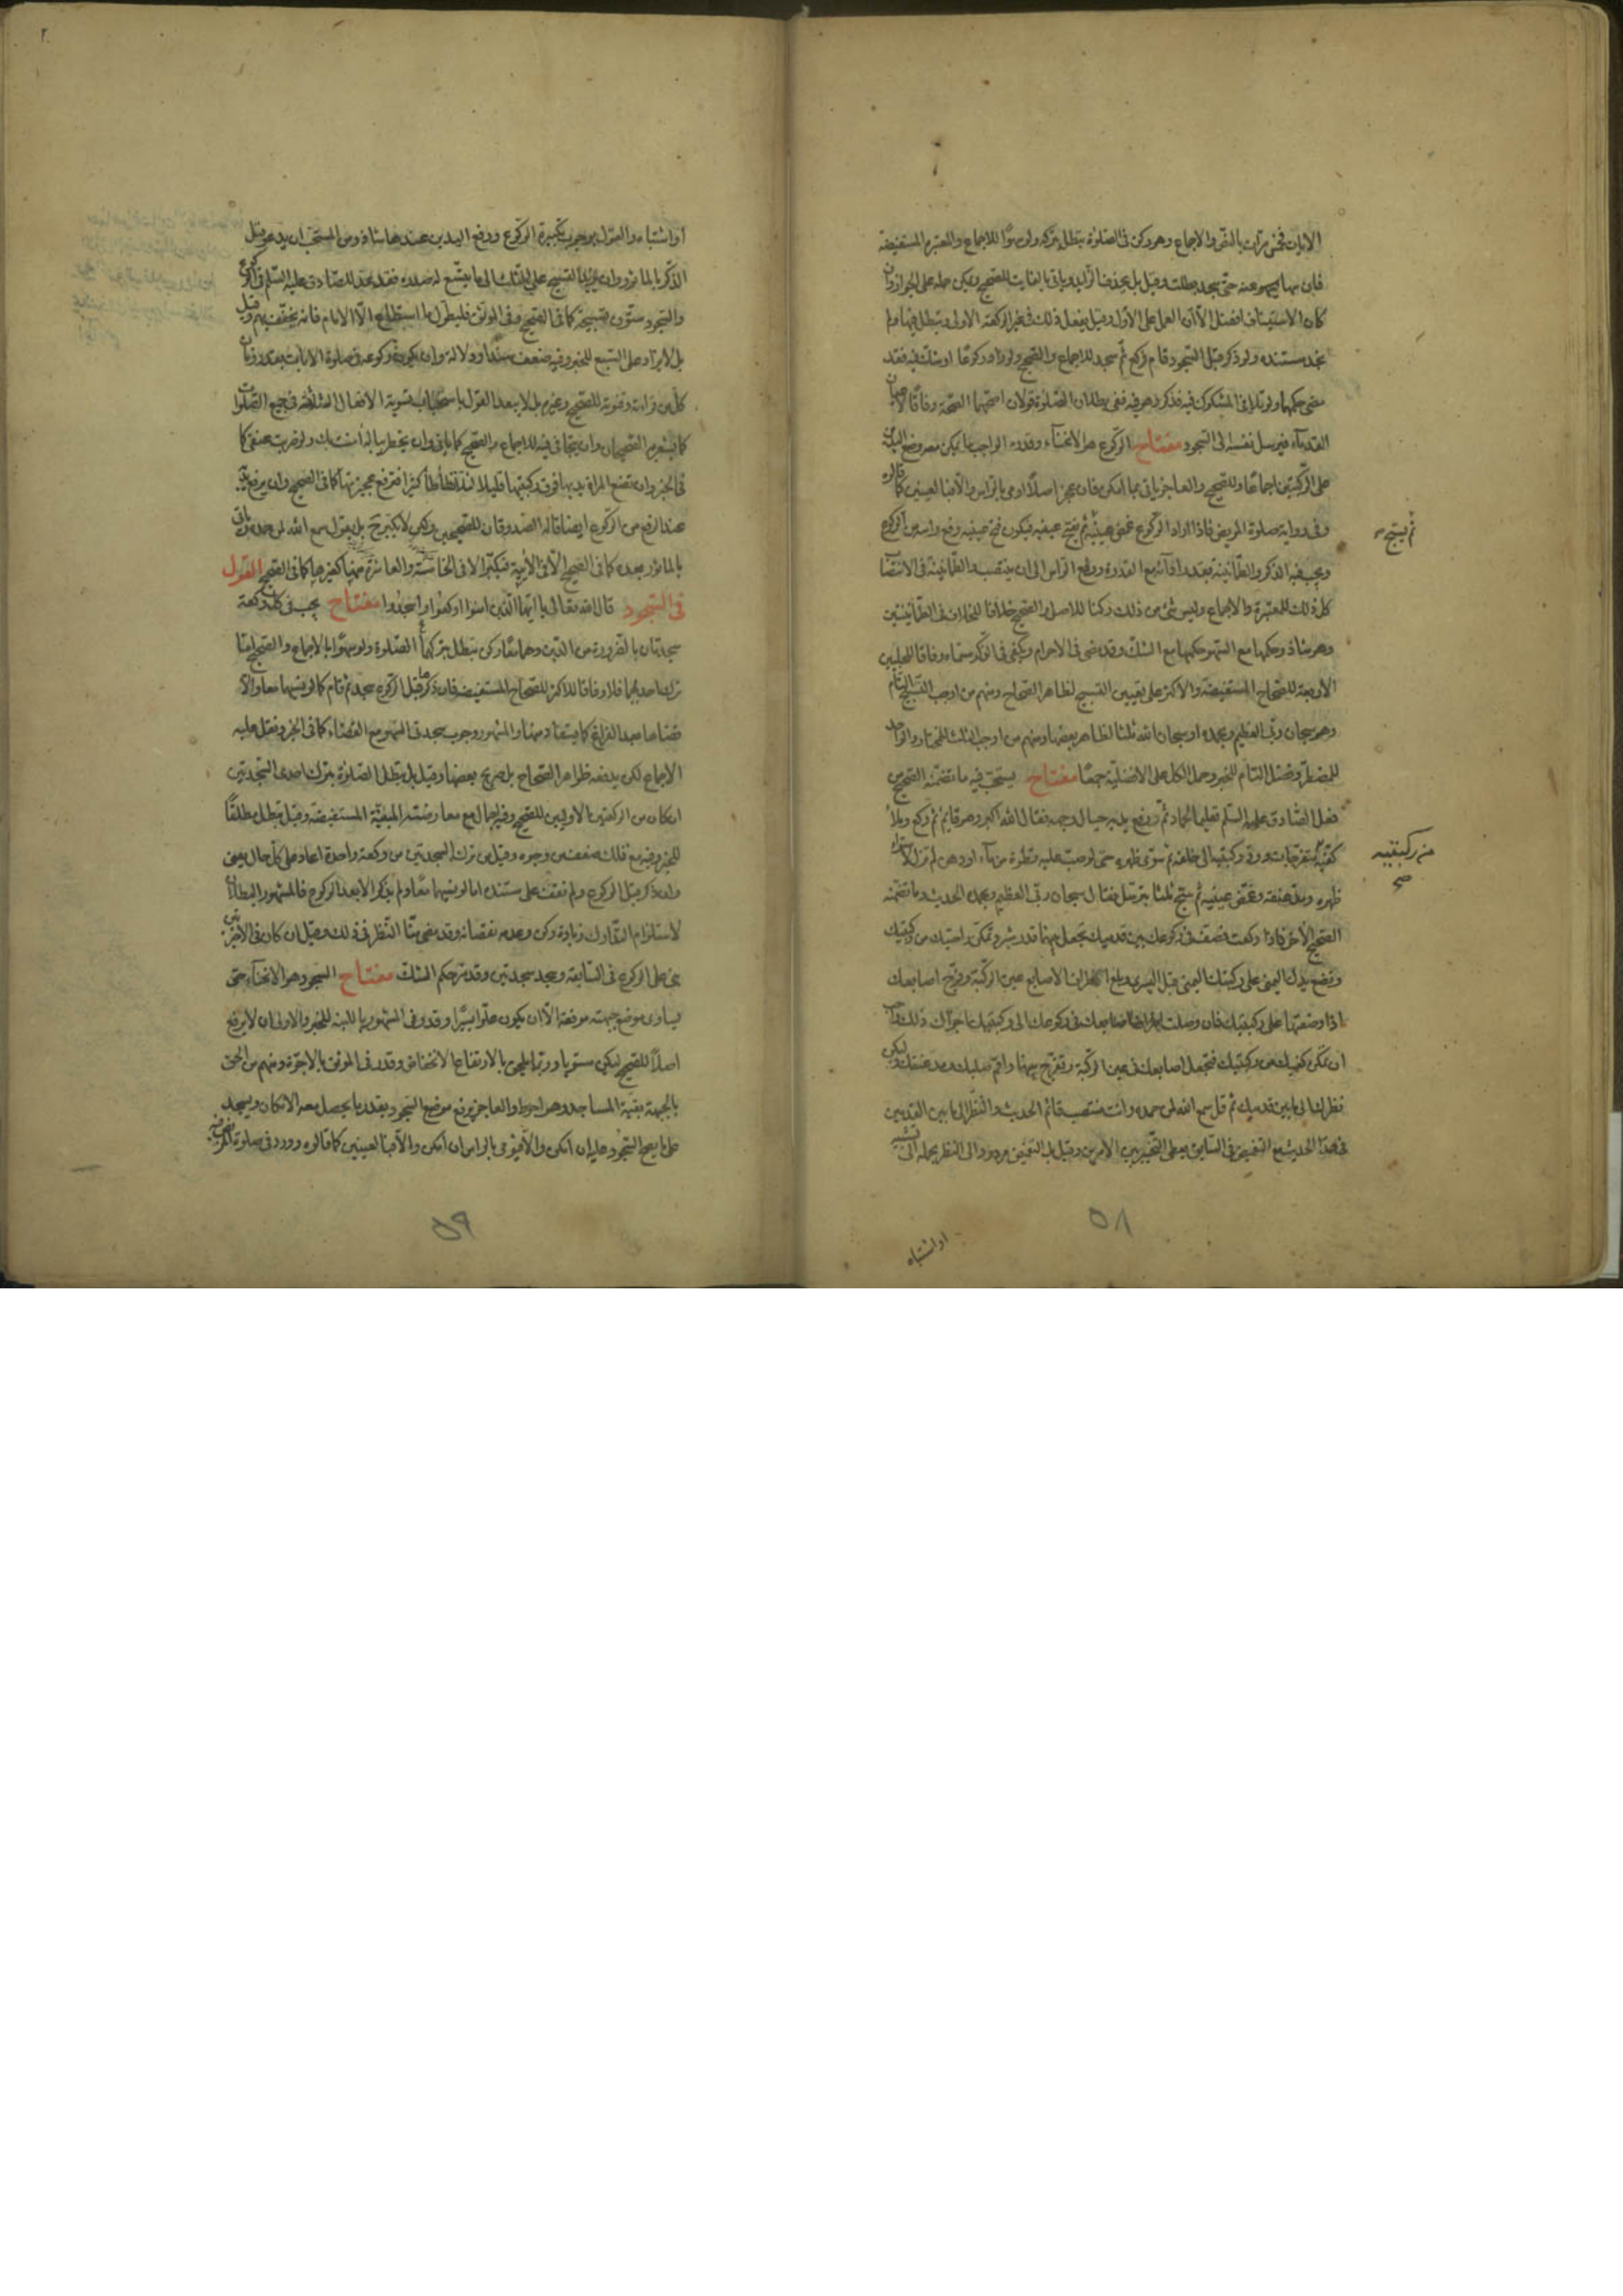 الايات فخمس مرات بالنص والاجماع وهو ركن في الصلوة تبطل بتركه ولو سهوا للاجماع والمعتبرة المستفيضة
فان سها عنه حتى سجد بطلت وقيل بل يحذف الزايد وياتي بالفايت للصحيح ويمكن حمله على الجواز وان
كان الاستيناف افضل الا ان العمل على الاول وقيل يفعل ذلك في غير الركعة الاولى وتبطل فيها ولم
نجد مستنده ولو ذكر قبل السجود قام فركع ثم سجد للاجماع والصحيح ولو زاد ركوعا او شك فيه فقد
مضى حكمهما ولو تلافى المشكوك فيه فذكر وهو فيه ففي بطلان الصلوة قولان اصحهما الصحة وفاقا
القدماء فيرسل نفسه الى السجود مفتاح الركوع هو الانحناء وقدره الواجب ما يمكن معه وضع اليدين
على الركبتين اجماعا وللصحيح والعاجز ياتي بما امكن فان عجز اصلا اومى بالراس والا فبالعينين كما قالوه
وفي رواية صلوة المريض فاذا اراد الركوع غمض عينيه ثم يفتح عينيه فيكون فتح عينيه رفع راسه من الركوع
ثم يسبح
ويجب فيه الذكر والطمانينة بقدر ادائه مع القدرة ورفع الراس الى ان ينتصب والطمانينة في الانتصاب
كل ذلك للمعتبرة والاجماع وليس شئ من ذلك ركنا للاصل والصحيح خلافا للخلاف في الطمانينتين
وهو شاذ وحكمها مع السهو حكمها مع الشك وقد مضى في الاحرام ويكفي في الذكر مسماه وفاقا للحليين
الاربعة للصحاح المستفيضة والاكثر على تعيين التسبيح لظاهر الصحاح ومنهم من اوجب التسبيح التام
وهو سبحان ربي العظيم وبحمده او سبحان الله ثلثا لظاهر بعضها ومنهم من اوجب الثلث للمختار والواحد
للمضطر وفضل التام للخبر وحمل الكل على الافضلية جمعا مفتاح يستحب فيه ما تضمنه الصحيح من
فعل الصادق عليه السلم تعليما لحماد ثم رفع يديه حيال وجهه فقال الله اكبر وهو قايم ثم ركع وملأ
كفيه متفرجات ورد ركبتيه الى خلفه ثم سوى ظهره حتى لو صب عليه قطرة من ماء او دهن لم تزل لاستواء
من ركبتيه
صح
ظهره ومد عنقه وغمض عينيه ثم سبح ثلثا بترتيل فقال سبحان ربي العظيم وبحمده الحديث وما تضمنه
الصحيح الاخر فاذا ركعت فصف في ركوعك بين قدميك تجعل بينهما قدر شبر وتمكن راحتيك من ركبتيك
وتضع يدك اليمنى على ركبتك اليمنى قبل اليسرى وبلغ اطراف الاصابع عين الركبة وفرج اصابعك
اذا وضعتها على ركبتيك فان وصلت اطراف اصابعك في ركوعك الى ركبتيك اجزاك ذلك واحب
ان تمكن كفيك من ركبتيك فتجعل اصابعك في عين الركبة وتفرج بينهما واقم صلبك ومد عنقك وليكن
نظرك الى ما بين قدميك ثم قل سمع الله لمن حمده وانت منتصب قائم الحديث والنظر الى ما بين القدمين
في هذا الحديث مع التغميض في السابق يعطي التخيير بين الامرين وقيل بل التغميض مردود الى النظر
او اشتباه
٥٨
او اشتباه والقول بوجوب تكبيرة الركوع ورفع اليدين عندها شاذ ومن المستحب ان يدعو قبل
الذكر بالماثور وان يزيد التسبيح على الثلث الى ما يتسع له صدره فقد عد للصادق عليه السلم في الركوع
والسجود ستون تسبيحة كما في الصحيح وفي الموثق فليطول ما استطاع الا الامام فانه يخفف بهم وقيل
بل لا يزاد على السبع للخبر وفيه ضعف سندا ودلالة وان يكون ركوعه في صلوة الايات بقدر زمان
كل من قراءته وقنوته للصحيح وغيره بل لا يبعد القول باستحباب تسوية الافعال الثلثة في جميع الصلوات
كما يشعر به الصحيحان وان يتجافى فيه للاجماع والصحيح كما ياتي وان يخطر بباله امنت بك ولو ضربت عنقي كما
في الخبر وان تضع المراة يديها فوق ركبتيها قليلا لئلا تطأطأ كثيرا فترفع عجيزتها كما في الصحيح وان يرفع يديه
عند الرفع من الركوع ايضا قاله الصدوقان للصحيحين ولكن لا تكبير ح بل يقول سمع الله لمن حمده وياتي
بالماثور بعده كما في الصحيح الا في الآيية فيكبر الا في الخامسة والعاشرة فهنا كغيرها كما في الصحيح القول
في السجود قال الله تعالى يا ايها الذين امنوا اركعوا واسجدوا مفتاح يجب في كل ركعة
سجدتان بالضرورة من الدين وهما معا ركن تبطل بتركهما الصلوة ولو سهوا بالاجماع والصحيح اما
ترك احديهما فلا وفاقا للاكثر للصحاح المستفيضة فان ذكرها قبل الركوع سجد ثم قام كما لو نسيهما معا والا
قضاها بعد الفراغ كما يستفاد منها والمشهور وجوب سجدتي السهو مع القضاء كما في الخبر ونقل عليه
الاجماع لكن يدفعه ظواهر الصحاح بل صريح بعضها وقيل بل تبطل الصلوة بترك احدى السجدتين
ان كان من الركعتين الاوليين للصحيح وفيه اجمال مع معارضته المبقية المستفيضة وقيل تبطل مطلقا
للخبر وفيه مع ذلك ضعف من وجوه وقيل من ترك السجدتين من ركعة واحدة اعاد على كل حال يعني
ولو ذكر قبل الركوع ولم نقف على مستنده اما لو نسيهما معا ولم يذكر الا بعد الركوع فالمشهور البطلان
لاستلزام التدارك زيادة ركن وعدمه نقصانه وقد مضى منا النظر في ذلك وقيل ان كان في الاخيرتين
بنى على الركوع في السابقة وسجد سجدتين وقد مر حكم الشك مفتاح السجود هو الانحناء حتى
يساوى موضع جبهته موقفه الا ان يكون علوا يسيرا وقدر في المشهور باللبنة للخبر والاولى ان لا يرفع
اصلا للصحيح ليكن مستويا وربما يلحق بالارتفاع الانخفاض وقدر في الموثق بالاجرة ومنهم من الحق
بالجبهة بقية المساجد وهو احوط والعاجز يرفع موضع السجود بقدر ما يحصل معه الامكان ويسجد
على ما يصح السجود عليه ان امكن والا فيومي بالراس ان امكن والا فبالعينين كما قالوه وورد في صلوة المريض
٥٩